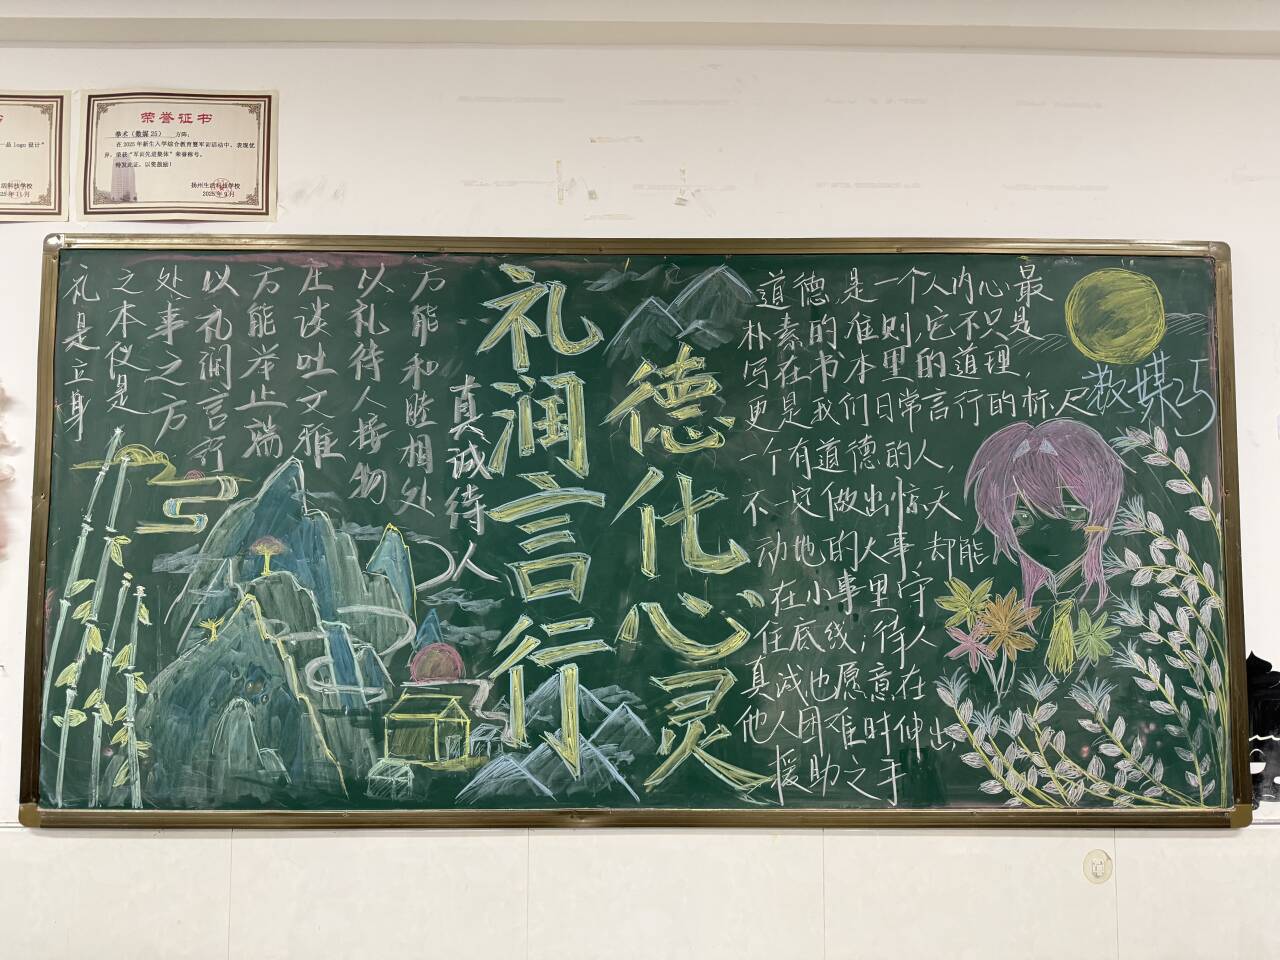 一品logo设计”
活科技学校
25年11月
荣誉证书
艺术(数媒25) 方阵:
在2025年新生入学综合教育暨军训活动中,表现优
异,荣获“军训先进集体”荣誉称号。
特发此证,以资鼓励!
扬州生活科技学校
2025年9月
礼是立身
之本仪是
处事之方
以礼润言行
方能举止端
庄谈吐文雅
以礼待人接物
方能和睦相处
真诚待人
礼润言行
德化心灵
道德,是一个人内心最
朴素的准则,它不只是
写在书本里的道理,
更是我们日常言行的标尺
一个有道德的人,
不一定做出惊天
动地的人事,却能
在小事里守
住底线,待人
真诚也愿意在
他人困难时伸出
援助之手
数媒25